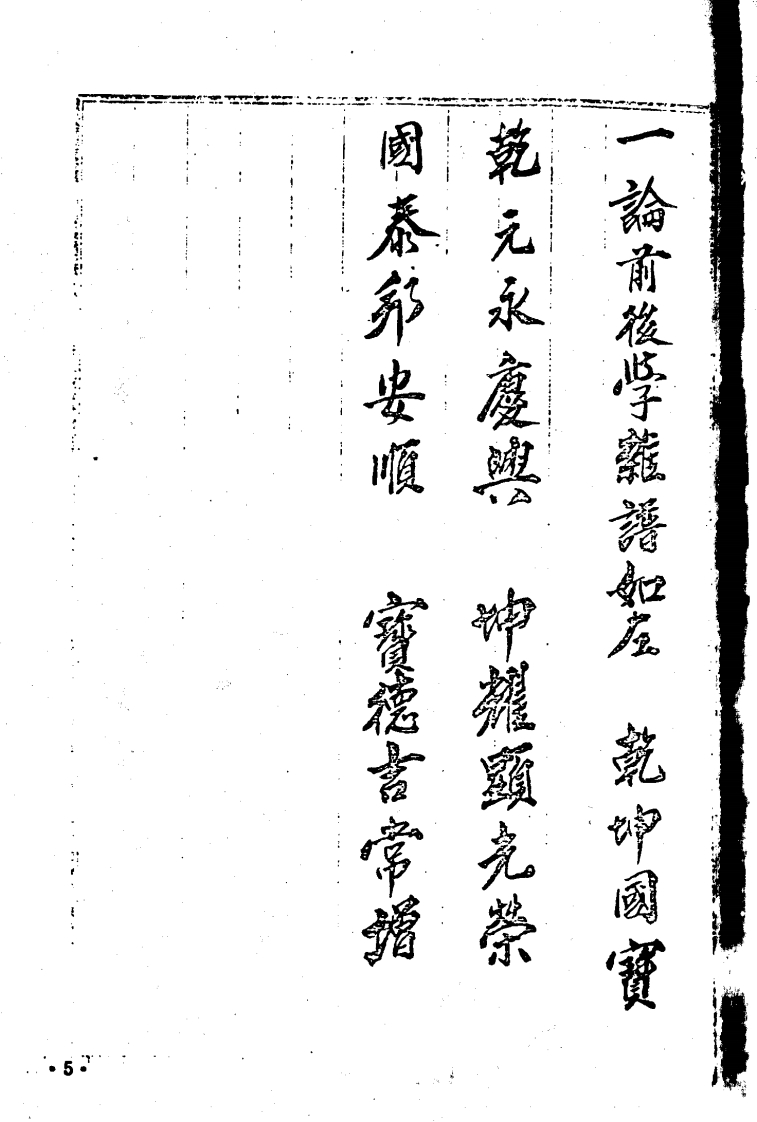 一論前後學雜譜如左 乾坤國寶
乾元永慶興 坤耀顯光榮
國泰邦安順 寶德吉常增
• 5 •